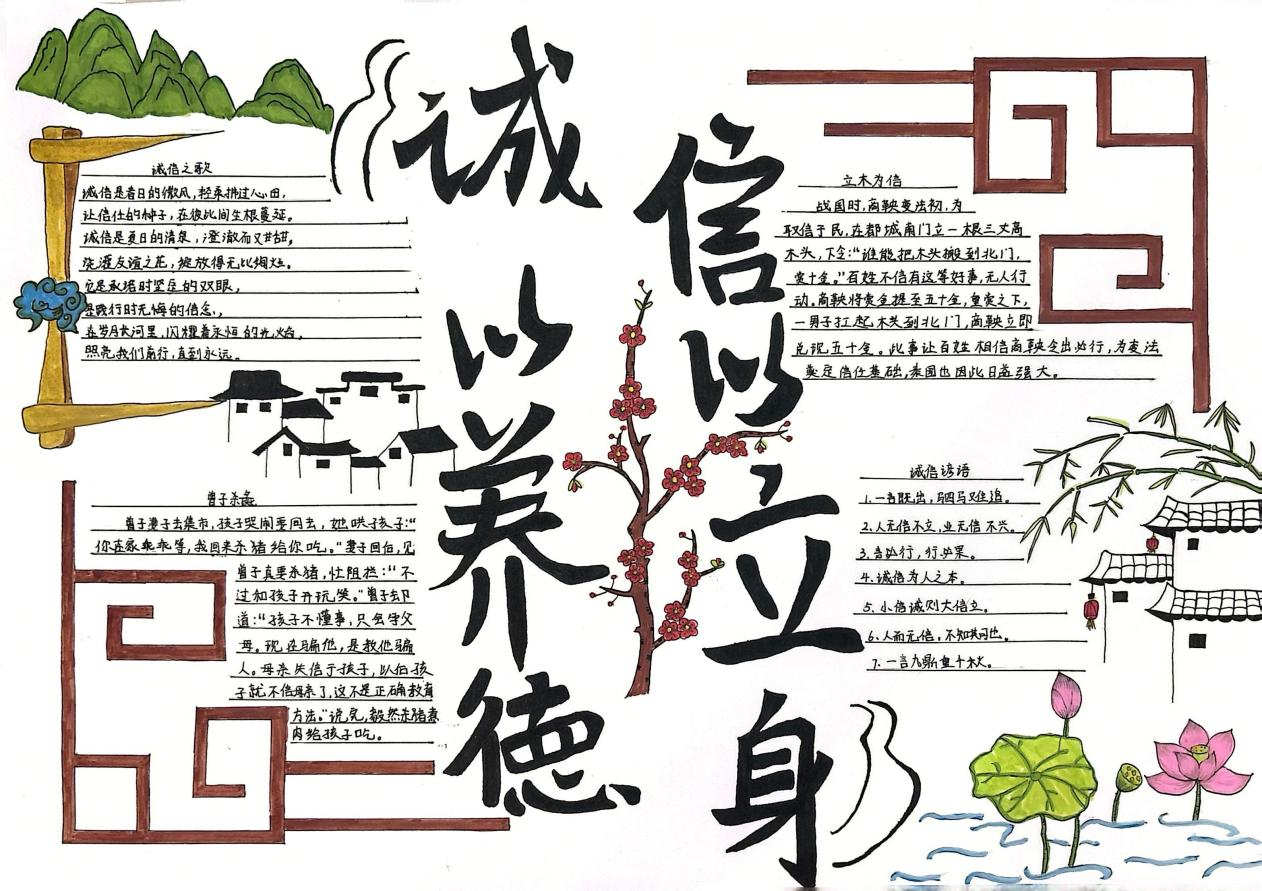 诚
以
养
德
信
以
立
身
诚信之歌
诚信是春日的微风，轻柔拂过心田，
让信任的种子，在彼此间生根蔓延。
诚信是夏日的清泉，澄澈而又甘甜，
浇灌友谊之花，绽放得无比绚烂。
它是承诺时坚定的双眼，
是践行时无悔的信念，
在岁月长河里，闪耀着永恒的光焰，
照亮我们前行，直到永远。
曾子杀彘
曾子妻子去集市，孩子哭闹要同去，她哄孩子：“
你在家乖乖等，我回来杀猪给你吃。”妻子回后，见
曾子真要杀猪，忙阻拦：“不
过和孩子开玩笑。”曾子却
道：“孩子不懂事，只会学父
母。现在骗他，是教他骗
人。母亲失信于孩子，以后孩
子就不信母亲了，这不是正确教育
方法。”说完，毅然杀猪煮
肉给孩子吃。
立木为信
战国时，商鞅变法初，为
取信于民，在都城南门立一根三丈高
木头，下令：“谁能把木头搬到北门，
赏十金。”百姓不信有这等好事，无人行
动。商鞅将赏金提至五十金，重赏之下，
一男子扛起木头到北门，商鞅立即
兑现五十金。此事让百姓相信商鞅令出必行，为变法
奠定信任基础，秦国也因此日益强大。
诚信谚语
1.一言既出，驷马难追。
2.人无信不立，业无信不兴。
3.言必行，行必果。
4.诚信为人之本。
5.小信诚则大信立。
6.人而无信，不知其可也。
7.一言九鼎重千秋。